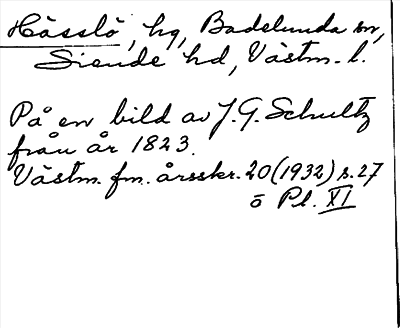 Hässlö, hg, Badelunda sn,
Siende hd, Västm. l.
På en bild av J.G. Schultz
från år 1823.
Västm. fm. årsskr. 20 (1932) s. 27
o Pl. XI